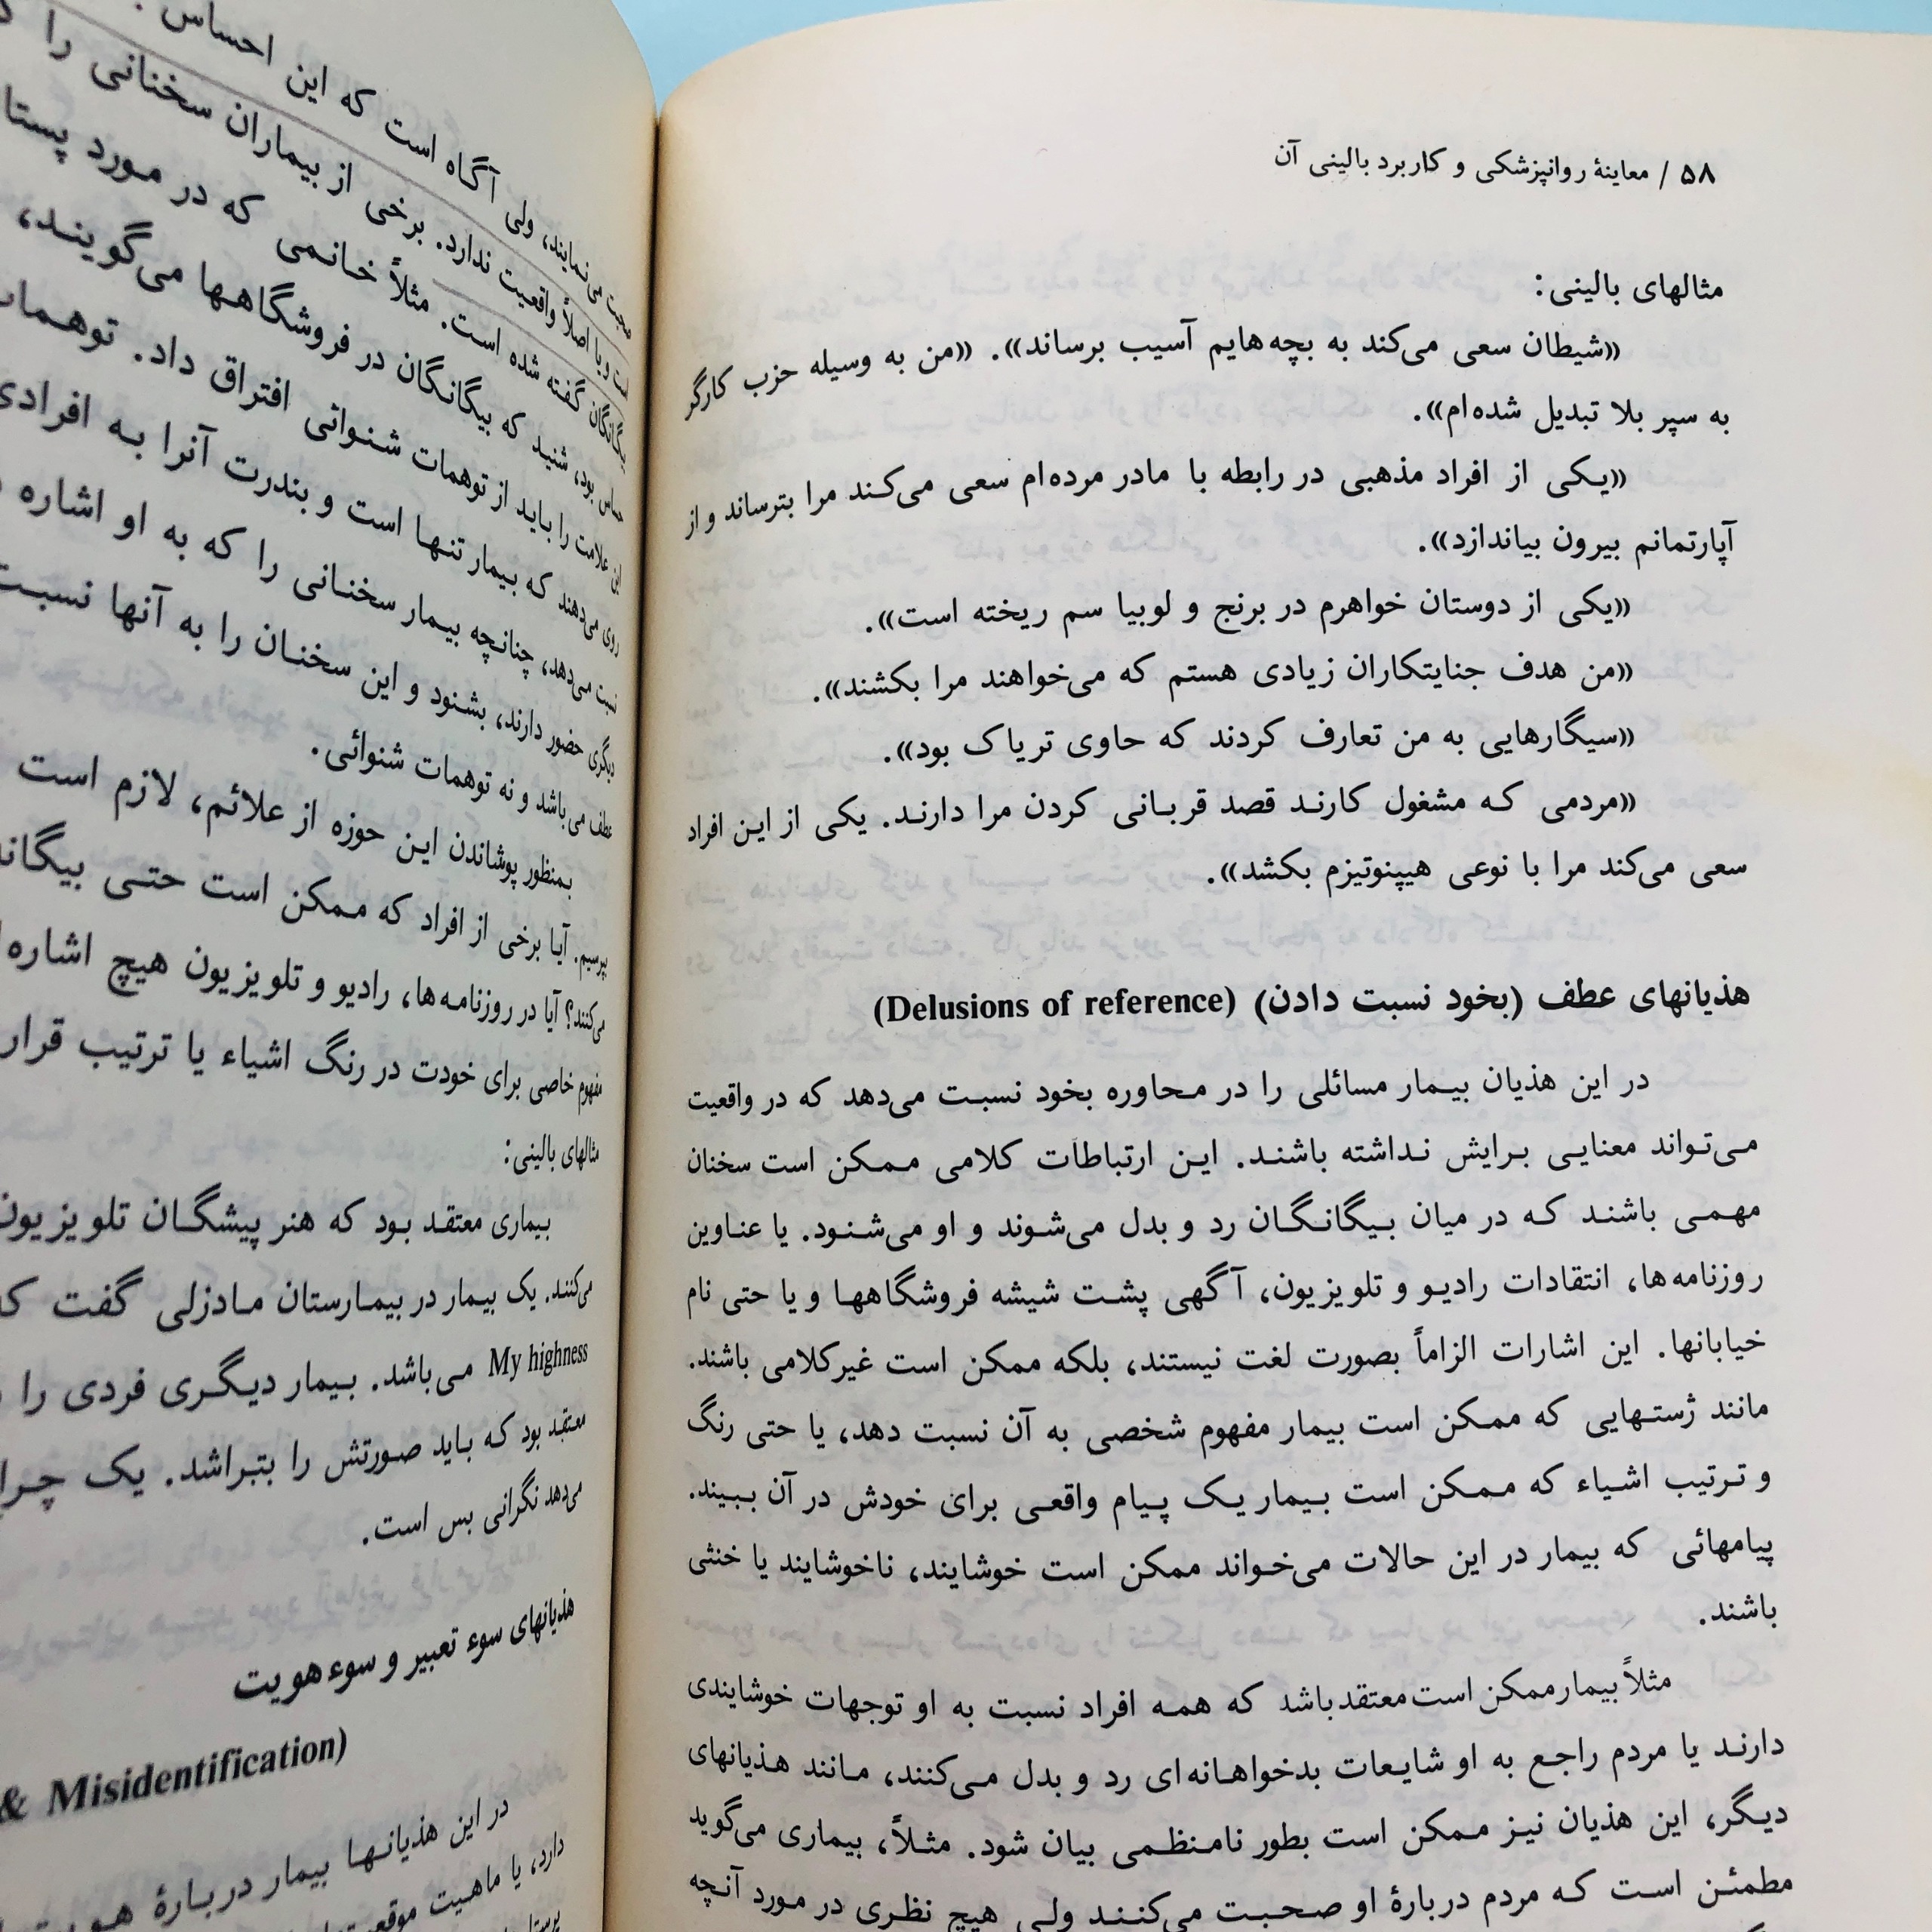 ۵۸ / معاینهٔ روانپزشکی و کاربرد بالینی آن
مثالهای بالینی:
«شیطان سعی می‌کند به بچه‌هایم آسیب برساند». «من به وسیله حزب کارگر
به سپر بلا تبدیل شده‌ام».
«یکی از افراد مذهبی در رابطه با مادر مرده‌ام سعی می‌کند مرا بترساند و از
آپارتمانم بیرون بیاندازد».
«یکی از دوستان خواهرم در برنج و لوبیا سم ریخته است».
«من هدف جنایتکاران زیادی هستم که می‌خواهند مرا بکشند».
«سیگارهایی به من تعارف کردند که حاوی تریاک بود».
«مردمی که مشغول کارند قصد قربانی کردن مرا دارند. یکی از این افراد
سعی می‌کند مرا با نوعی هیپنوتیزم بکشد».
هذیانهای عطف (بخود نسبت دادن) (Delusions of reference)
در این هذیان بیمار مسائلی را در محاوره بخود نسبت می‌دهد که در واقعیت
می‌تواند معنایی برایش نداشته باشند. این ارتباطات کلامی ممکن است سخنان
مهمی باشند که در میان بیگانگان رد و بدل می‌شوند و او می‌شنود. یا عناوین
روزنامه‌ها، انتقادات رادیو و تلویزیون، آگهی پشت شیشه فروشگاهها و یا حتی نام
خیابانها. این اشارات الزاماً بصورت لغت نیستند، بلکه ممکن است غیرکلامی باشند.
مانند ژستهایی که ممکن است بیمار مفهوم شخصی به آن نسبت دهد، یا حتی رنگ
و ترتیب اشیاء که ممکن است بیمار یک پیام واقعی برای خودش در آن ببیند.
پیامهائی که بیمار در این حالات می‌خواند ممکن است خوشایند، ناخوشایند یا خنثی
باشند.
مثلاً بیمار ممکن است معتقد باشد که همه افراد نسبت به او توجهات خوشایندی
دارند یا مردم راجع به او شایعات بدخواهانه‌ای رد و بدل می‌کنند، مانند هذیانهای
دیگر، این هذیان نیز ممکن است بطور نامنظمی بیان شود. مثلاً، بیماری می‌گوید
مطمئن است که مردم دربارهٔ او صحبت می‌کنند ولی هیچ نظری در مورد آنچه
صحبت می‌نمایند، ولی آگاه است که این احساس
است و یا اصلاً واقعیت ندارد. برخی از بیماران سخنانی را
بیگانگان گفته شده است. مثلاً خانمی که در مورد
حساس بود، شنید که بیگانگان در فروشگاهها می‌گویند،
این علامت را باید از توهمات شنوائی افتراق داد.
روی می‌دهند که بیمار تنها است و بندرت آنرا به افرادی
نسبت می‌دهد، چنانچه بیمار سخنانی را که به او اشاره
دیگری حضور دارند، بشنود و این سخنان را به آنها
عطف می‌باشد و نه توهمات شنوائی.
بمنظور پوشاندن این حوزه از علائم، لازم است
بپرسیم. آیا برخی از افراد که ممکن است حتی
می‌کنند؟ آیا در روزنامه‌ها، رادیو و تلویزیون هیچ
مفهوم خاصی برای خودت در رنگ اشیاء یا ترتیب قرار
مثالهای بالینی:
بیماری معتقد بود که هنرپیشگان تلویزیون
می‌کنند. یک بیمار در بیمارستان مادزلی گفت
My highness می‌باشد. بیمار دیگری فردی را
معتقد بود که باید صورتش را بتراشد. یک
می‌دهد نگرانی بس است.
هذیانهای سوء تعبیر و سوء هویت
& Misidentification)
در این هذیانها بیمار دربارهٔ
دارد، یا ماهیت